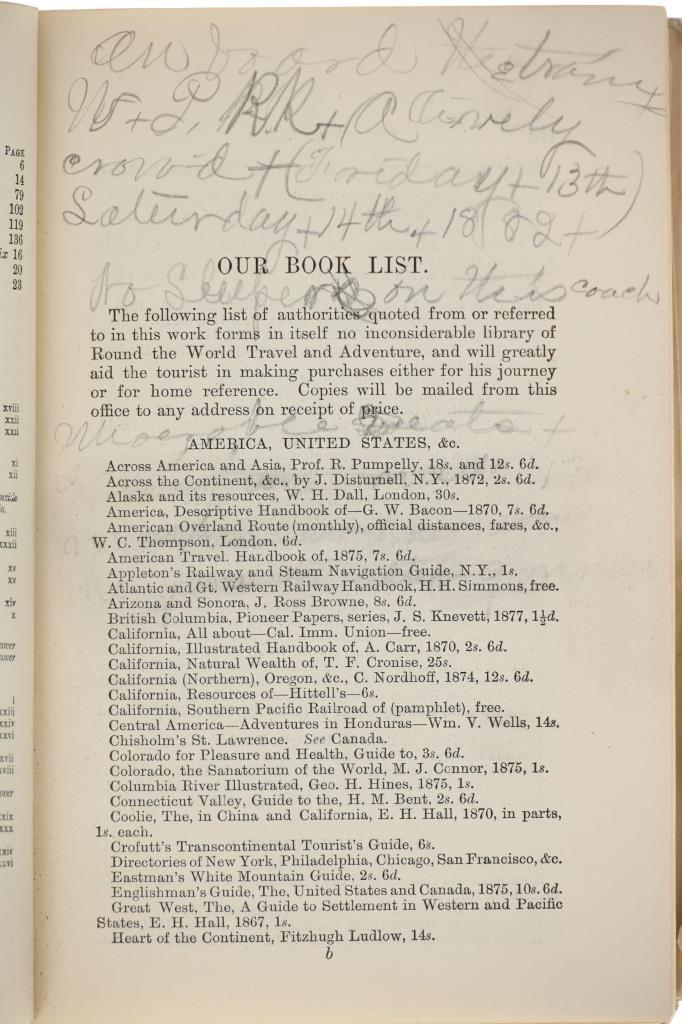 PAGE
6
14
79
102
119
136
ix 16
20
23
xviii
xxii
xxii
xi
xii
xiii
xxxii
xv
xv
xiv
x
cover
cover
i
xxiii
xxiv
xxvi
xvii
xviii
over
xxix
xxx
xxiv
xxvi
On board train +
W + P. RR + A lively
crowd + (Friday + 13th)
Saturday + 14th + 1882 +
OUR BOOK LIST.
No Sleepers on this coach
The following list of authorities quoted from or referred
to in this work forms in itself no inconsiderable library of
Round the World Travel and Adventure, and will greatly
aid the tourist in making purchases either for his journey
or for home reference. Copies will be mailed from this
office to any address on receipt of price.
AMERICA, UNITED STATES, &c.
Across America and Asia, Prof. R. Pumpelly, 18s. and 12s. 6d.
Across the Continent, &c., by J. Disturnell, N.Y., 1872, 2s. 6d.
Alaska and its resources, W. H. Dall, London, 30s.
America, Descriptive Handbook of—G. W. Bacon—1870, 7s. 6d.
American Overland Route (monthly), official distances, fares, &c.,
W. C. Thompson, London, 6d.
American Travel. Handbook of, 1875, 7s. 6d.
Appleton's Railway and Steam Navigation Guide, N.Y., 1s.
Atlantic and Gt. Western Railway Handbook, H. H. Simmons, free.
Arizona and Sonora, J. Ross Browne, 8s. 6d.
British Columbia, Pioneer Papers, series, J. S. Knevett, 1877, 1½d.
California, All about—Cal. Imm. Union—free.
California, Illustrated Handbook of, A. Carr, 1870, 2s. 6d.
California, Natural Wealth of, T. F. Cronise, 25s.
California (Northern), Oregon, &c., C. Nordhoff, 1874, 12s. 6d.
California, Resources of—Hittell's—6s.
California, Southern Pacific Railroad of (pamphlet), free.
Central America—Adventures in Honduras—Wm. V. Wells, 14s.
Chisholm's St. Lawrence. See Canada.
Colorado for Pleasure and Health, Guide to, 3s. 6d.
Colorado, the Sanatorium of the World, M. J. Connor, 1875, 1s.
Columbia River Illustrated, Geo. H. Hines, 1875, 1s.
Connecticut Valley, Guide to the, H. M. Bent, 2s. 6d.
Coolie, The, in China and California, E. H. Hall, 1870, in parts,
1s. each.
Crofutt's Transcontinental Tourist's Guide, 6s.
Directories of New York, Philadelphia, Chicago, San Francisco, &c.
Eastman's White Mountain Guide, 2s. 6d.
Englishman's Guide, The, United States and Canada, 1875, 10s. 6d.
Great West, The, A Guide to Settlement in Western and Pacific
States, E. H. Hall, 1867, 1s.
Heart of the Continent, Fitzhugh Ludlow, 14s.
b